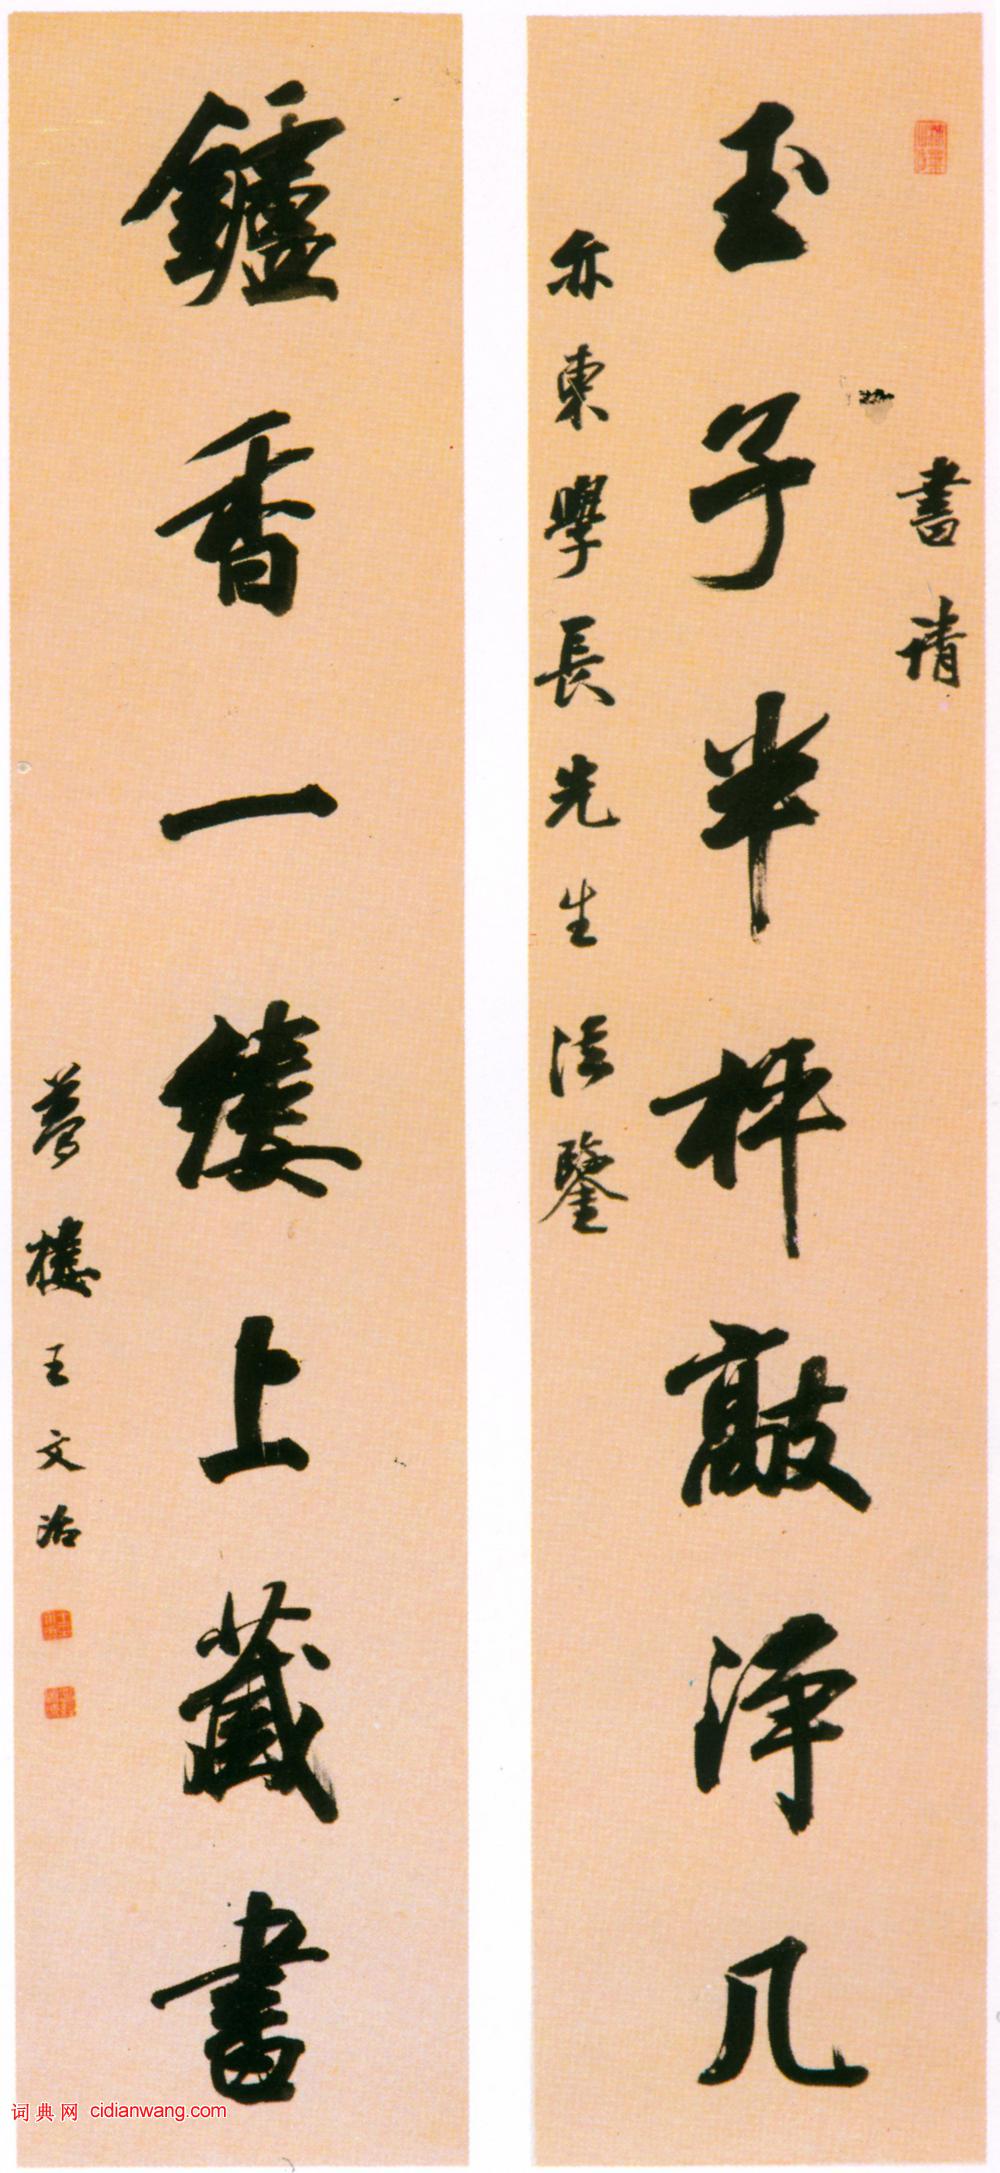 書請
玉子半枰敲淨几
亦東學長先生法鑒
鑪香一縷上藏書
夢樓王文治
词典网 cidianwang.com